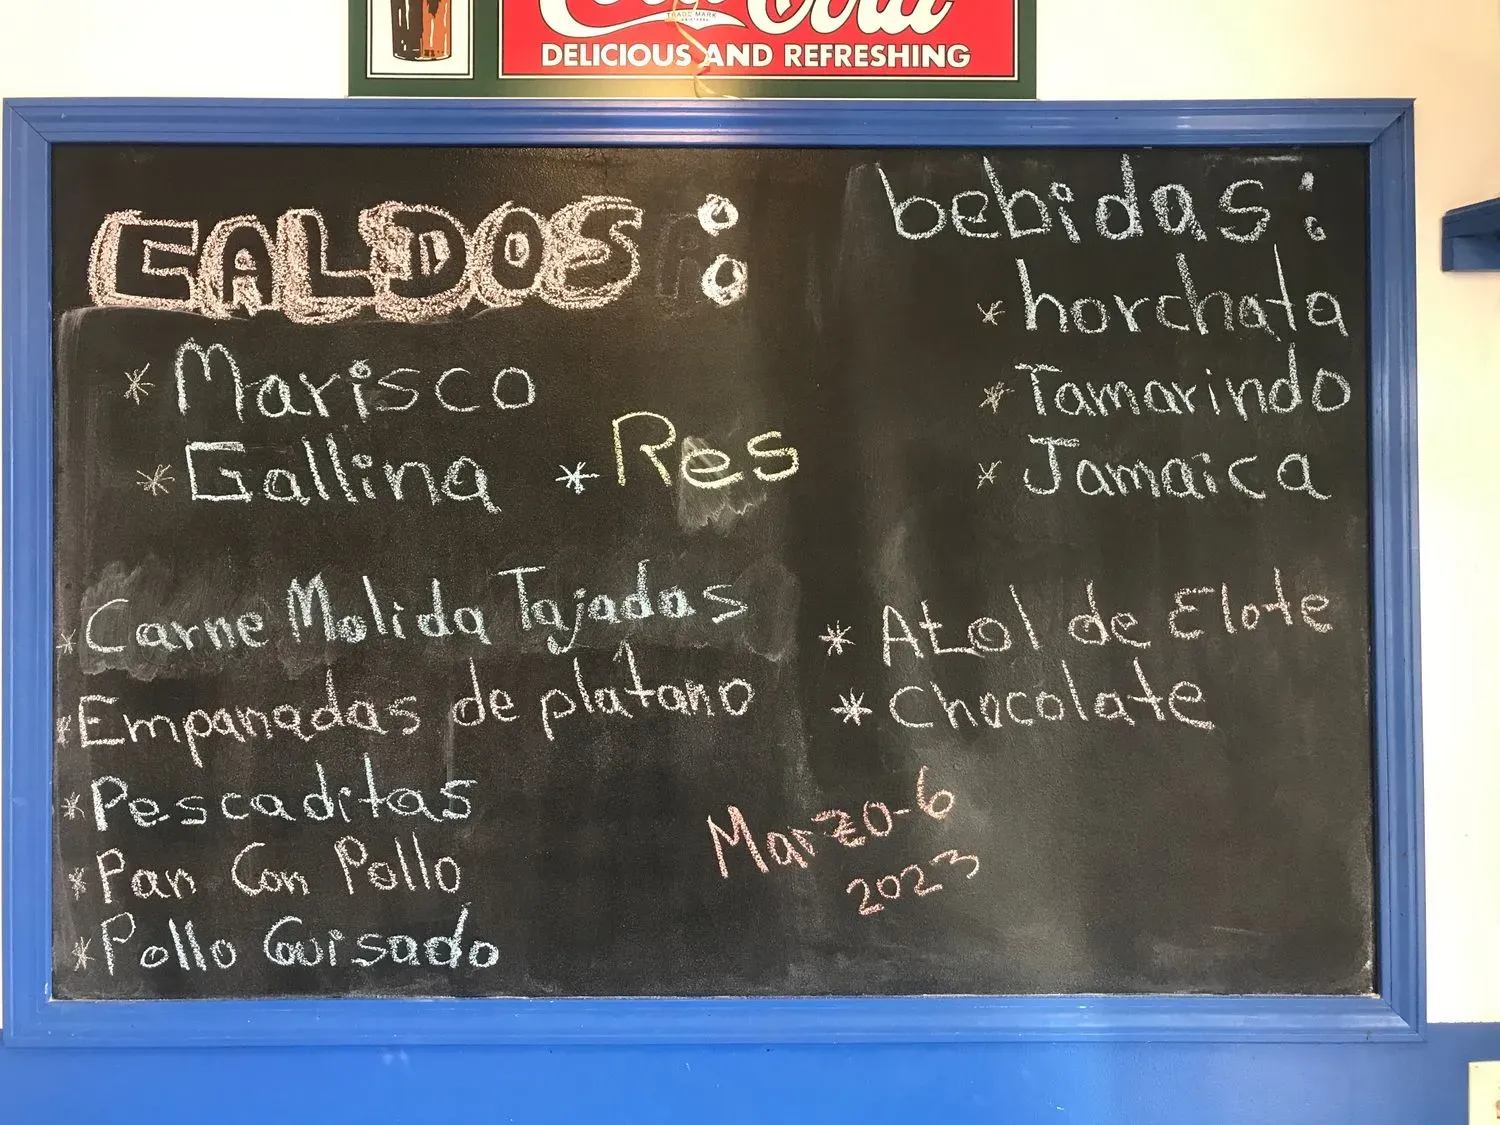 Coca-Cola
TRADE MARK
DELICIOUS AND REFRESHING
CALDOS:
* Marisco
* Gallina * Res
* Carne Molida Tajadas
* Empanadas de plátano
* Pescaditas
* Pan Con Pollo
* Pollo Guisado
bebidas:
* horchata
* Tamarindo
* Jamaica
* Atol de Elote
* Chocolate
Marzo-6
2023